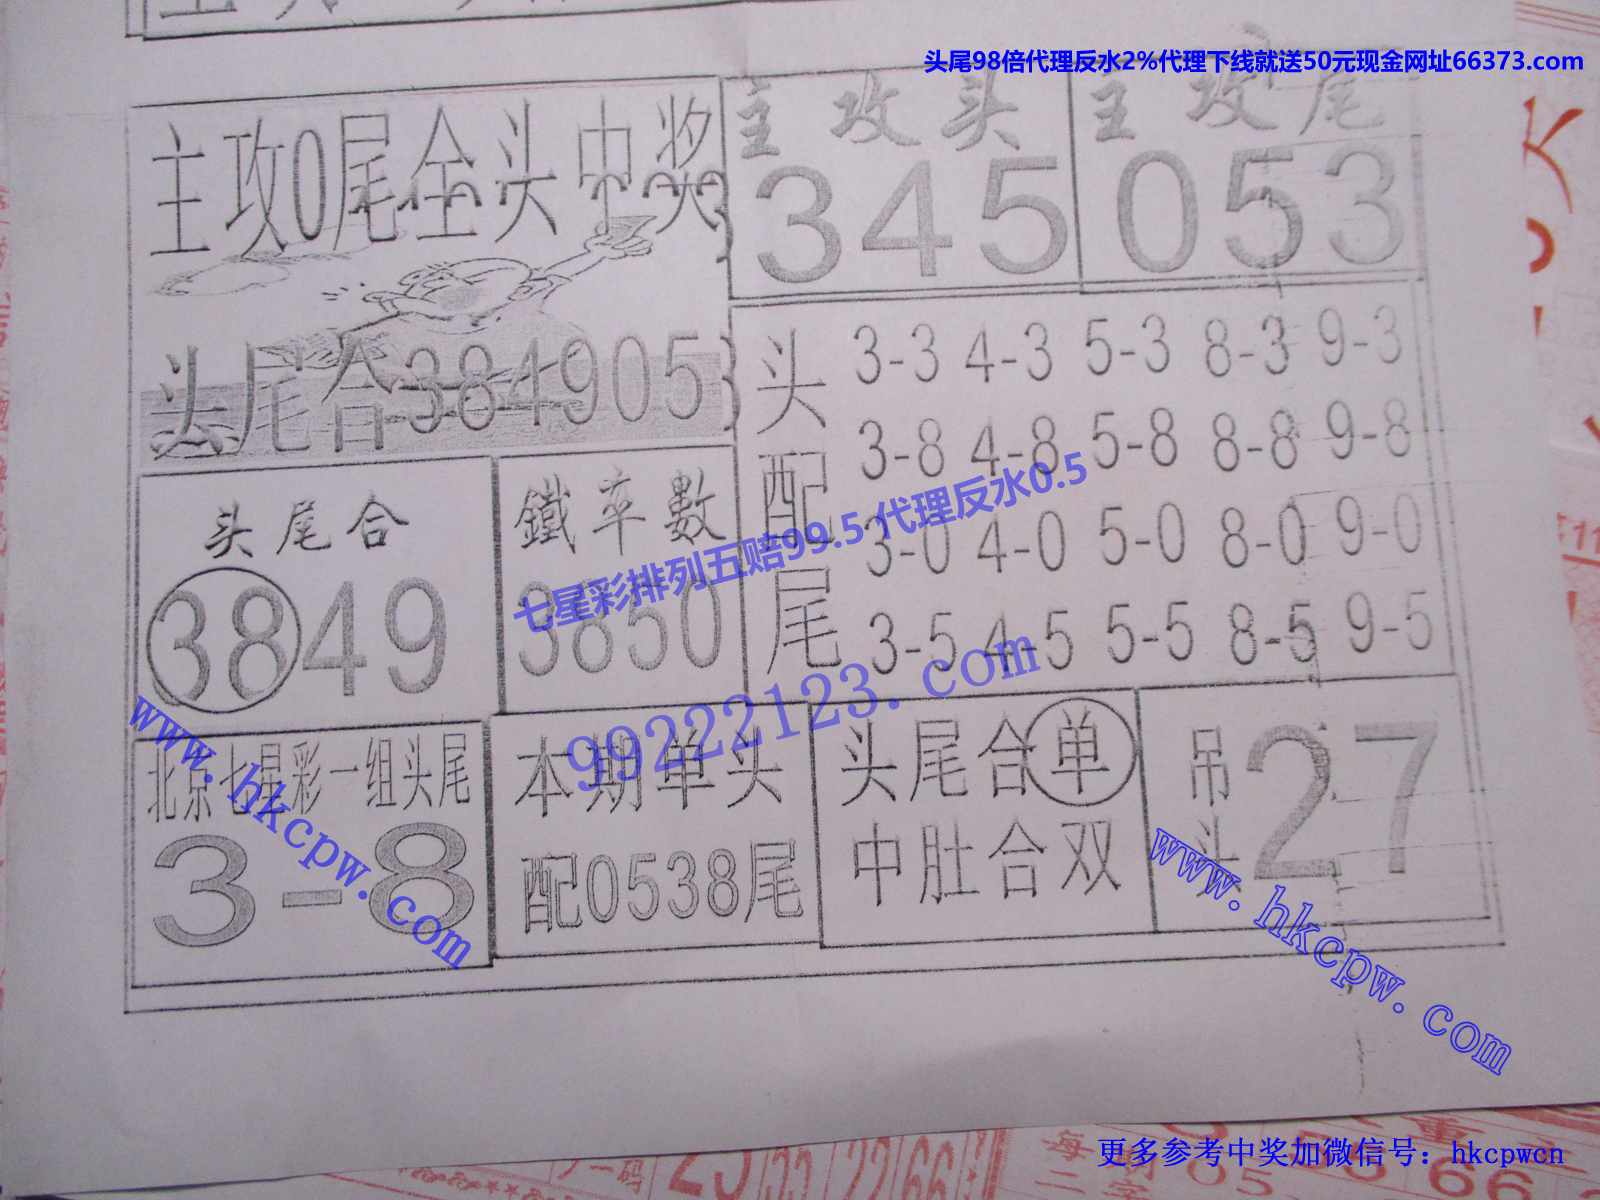 头尾98倍代理反水2%代理下线就送50元现金网址66373.com
主攻0尾全头中奖
头尾合384905
主攻头
345
主攻尾
053
头配尾
3-3 4-3 5-3 8-3 9-3
3-8 4-8 5-8 8-8 9-8
3-0 4-0 5-0 8-0 9-0
3-5 4-5 5-5 8-5 9-5
头尾合
3849
鐵率數
3850
七星彩排列五赔99.5代理反水0.5
99222123.com
北京七星彩一组头尾
3-8
本期单头
配0538尾
头尾合单
中肚合双
吊头
27
www.hkcpw.com
www.hkcpw.com
更多参考中奖加微信号：hkcpwcn